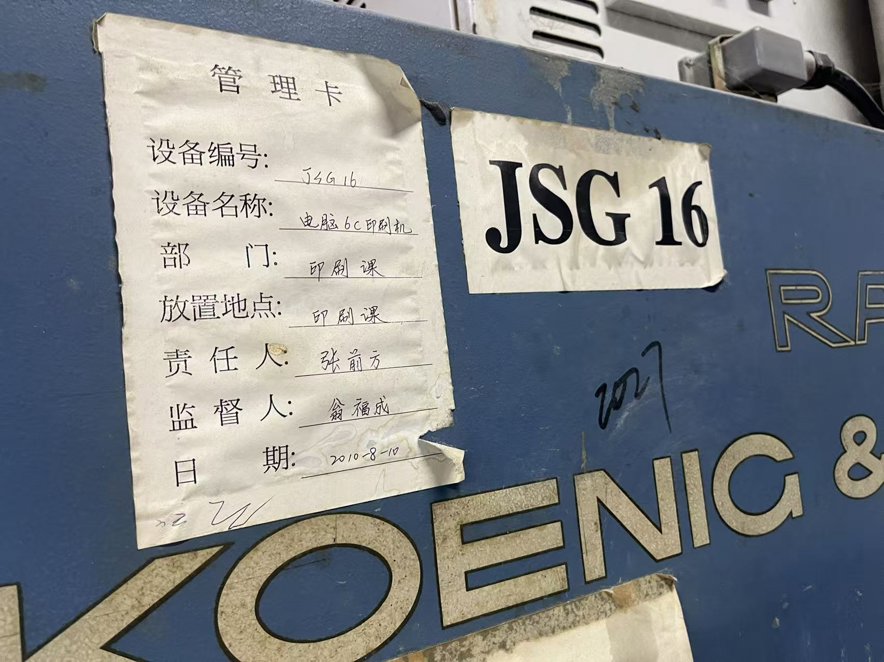 管理卡
设备编号: JSG 16
设备名称: 电脑6C印刷机
部 门: 印刷课
放置地点: 印刷课
责任人: 张前方
监督人: 翁福成
日 期: 2010-8-10
JSG 16
RA
2027
KOENIG &